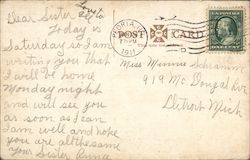 Love to
all
Dear Sister
Today is
Saturday so I am
writing you that
I will be home
Monday night
and will see you
as soon as I can
I am well and hope
you are all the same
Your Sister Anna
POST CARD
1911
Miss Minnie Schramm
919 McDougal Ave
Detroit Mich